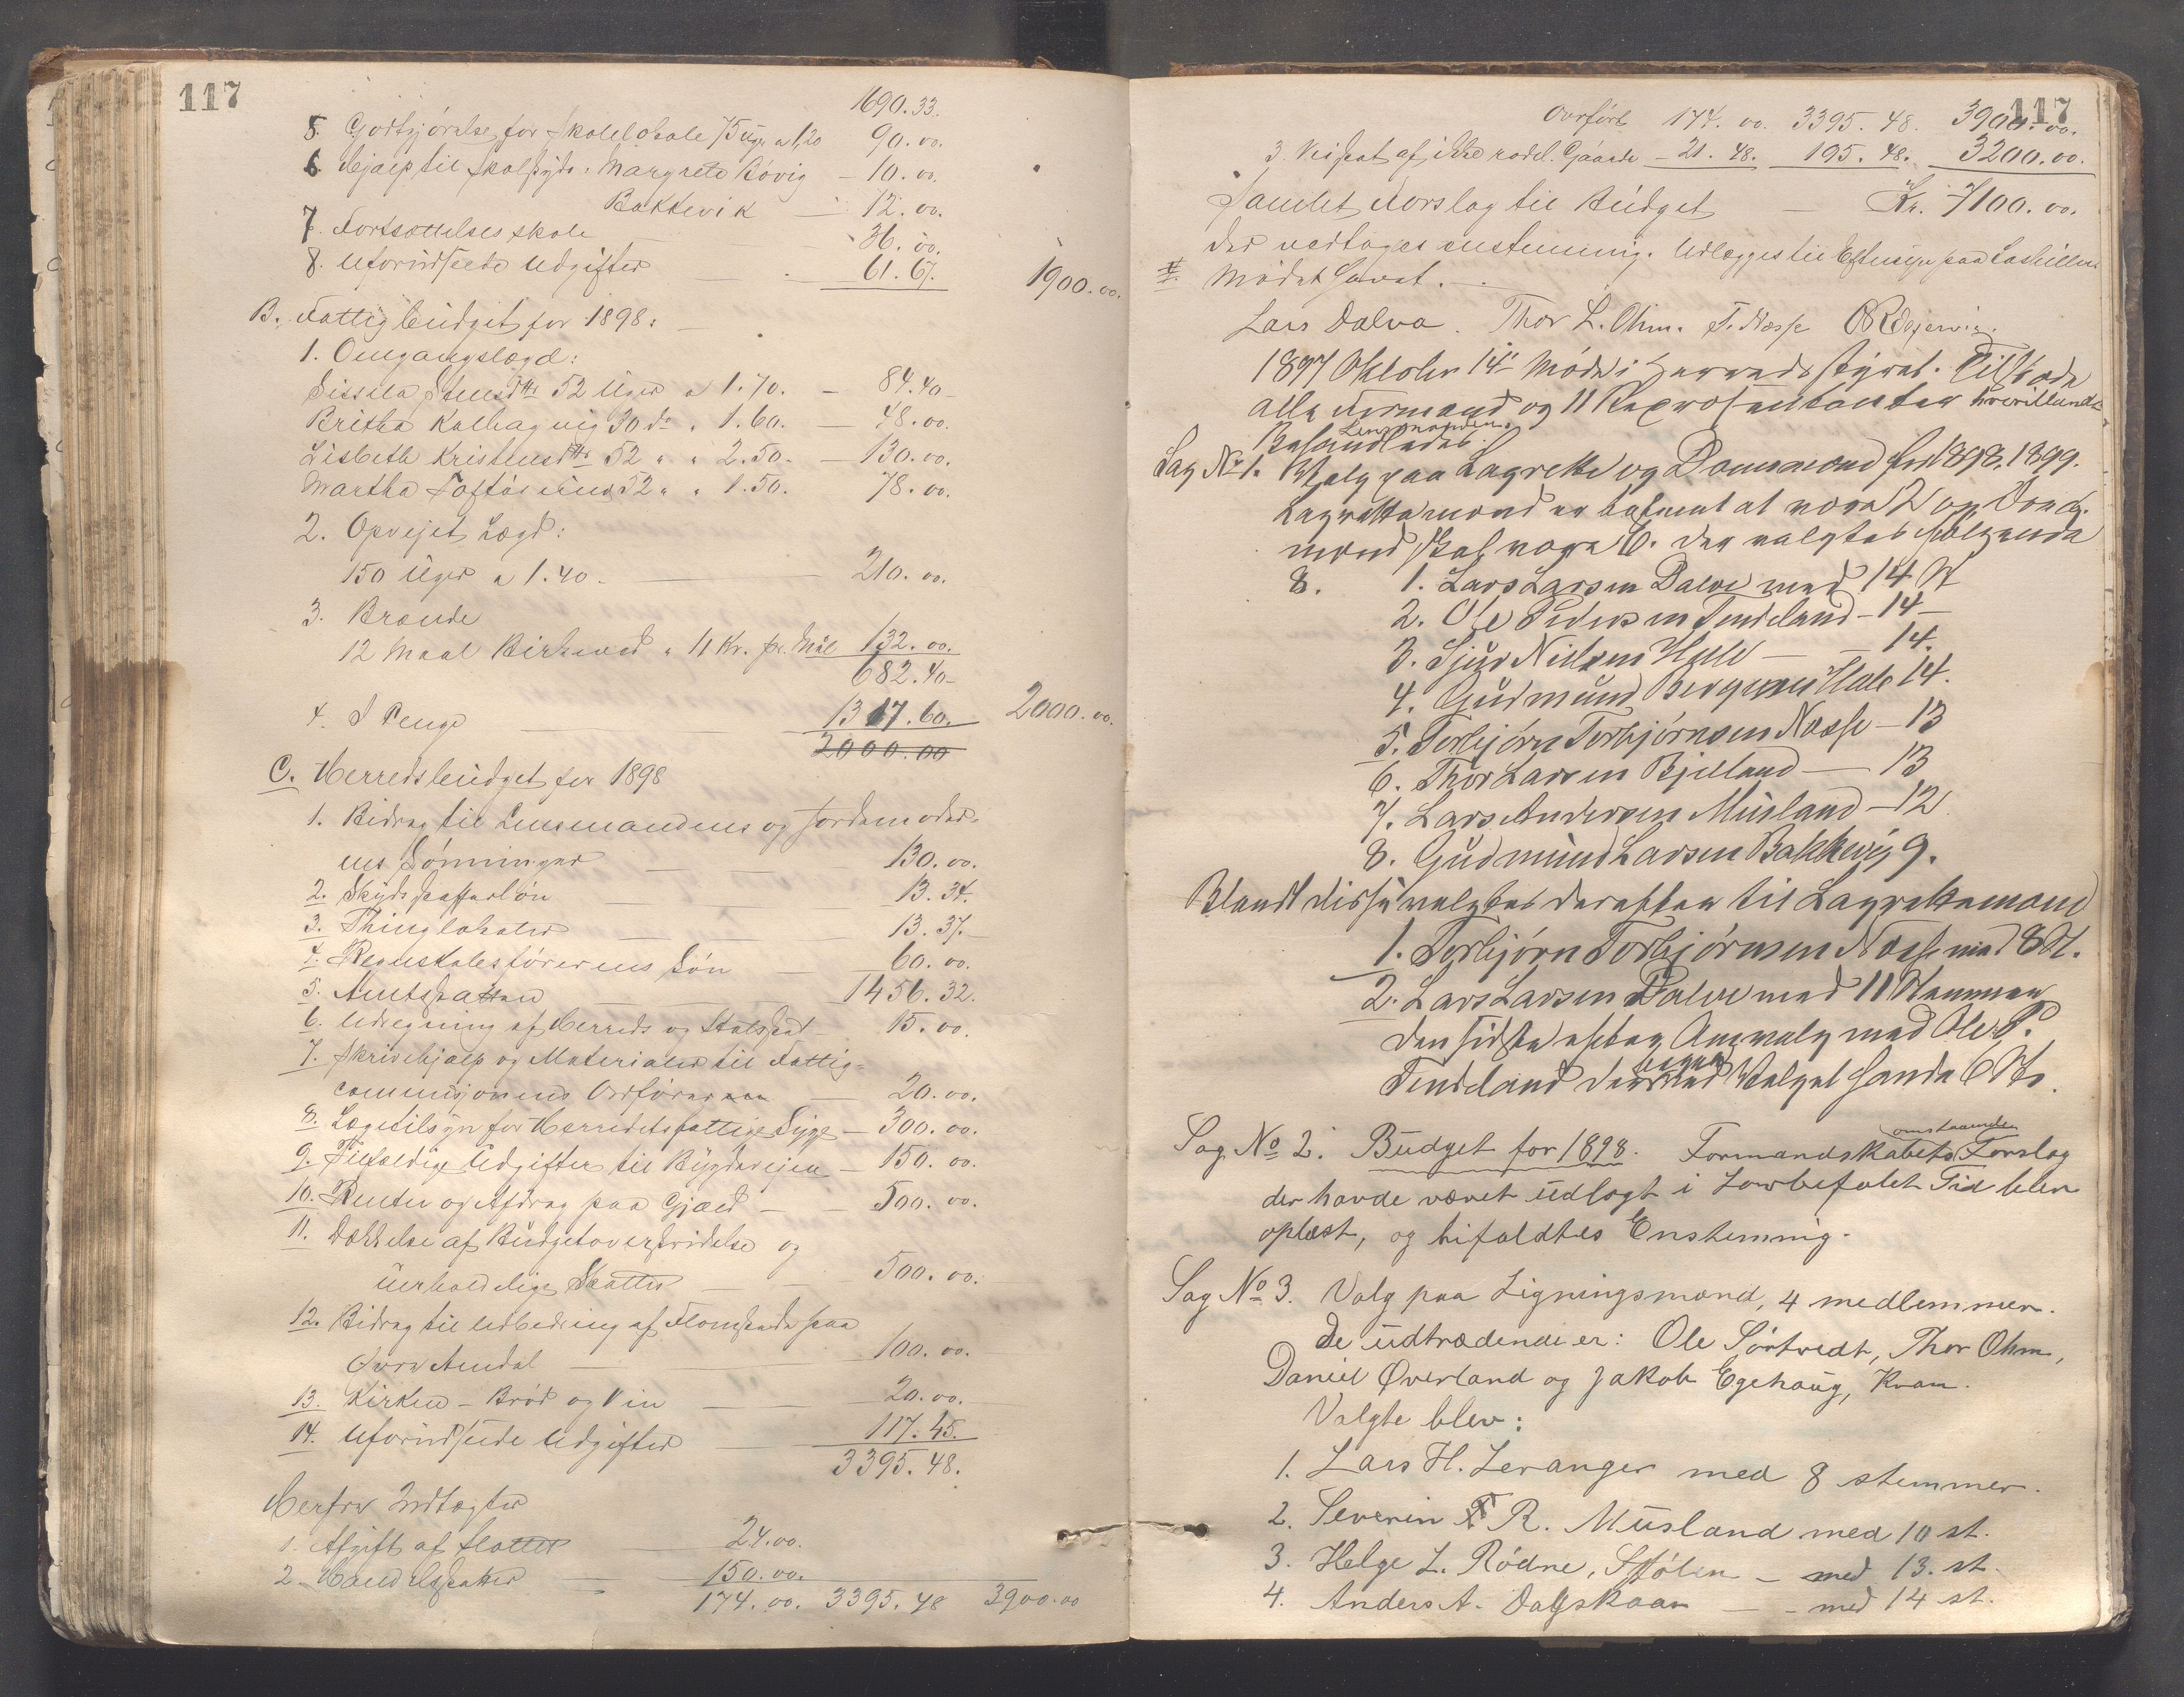 117
1690.33.
5. Godtgjörelse for Skolelokale 75 Uger a 1,20 90.00.
6. Hjælp til Skolskyds: Margrete Bövig — 10.00.
Bakkevik — 12.00.
7. Fortsættelsesskole 36.00.
8. Uforudseede Udgifter — 61.67. 1900.00.
B. Fattigbudget for 1898:
1. Omgangslægd:
Sissela 52 Uger a 1.70. — 84.40
Britha Kalhagvig 30 do " 1.60. — 48.00.
Lisbeth Kristensdtr 52 " " 2.50. — 130.00.
Martha 52 " " 1.50. 78.00.
2. Opvejet Lægd:
150 Uger a 1.40. — 210.00.
3. Brænde
12 Maal Birkeved a 11 Kr. pr. Mål 132.00.
682.40
4. I Penge — 1317.60. 2000.00.
2000.00
C. Herredsbudget for 1898
1. Bidrag til Lensmandens og Jordemoder-
ens Lönninger — 130.00.
2. Skydsskafferlön 13.34.
3. Thinglokaler 13.37.
4. Regnskabsförerens Lön 60.00.
5. Amtsskatten — 1456.32.
6. Udregning af Herreds og Skolskat — 15.00.
7. Skrivehjælp og Materialer til Fattig-
commisjonens Ordförer — 20.00.
8. Lægetilsyn for Herredets fattige Syge — 300.00.
9. Tilfældige Udgifter til Bygdeveiene — 150.00.
10. Renter og Afdrag paa Gjæld — 500.00.
11. Dækkelse af Budgetoverskridelse og
uerholdelige Skatter — 500.00.
12. Bidrag til Udbedring af Flomskade paa
Övre Amdal — 100.00.
13. Kirken – Bröd og Vin — 20.00.
14. Uforudseede Udgifter — 117.45.
3395.48.
Herfra Indtægter
1. Afgift af 24.00.
2. Handelsskatter — 150.00.
174.00. 3395.48 3900.00
117
Overfört 174.00. 3395.48. 3900.00.
3. Veiskat af ikke rodel. Gaarde — 21.48. 195.48. 3200.00.
Samlet Forslag til Budget — Kr. 7100.00.
der vedtages enstemmig. Udlægges til Eftersyn paa
Mödet hævet.
Lars Dalva. Thor L. Ohm. T. Næsse
1897 Oktober 14de Möde i Herredsstyret. Tilstede
alle Formænd og 11 Repræsentanter hvoriblandt
Lensmanden.
Behandledes:
Sag No 1. Valg paa Lagrette og Domsmænd for 1898.1899.
Lagrettemænd er bestemt at være 2 og Doms-
mænd skal være 6. der valgtes fölgende
8. 1. Lars Larsen Dalve med 14 St
2. Ole Pedersen Tendeland – 14 –
3. Sjur Nielsen Hale — 14.
4. Gudmund Bergesen Hale 14.
5. Torbjörn Torbjörnsen Næsse – 13
6. Thor Larsen Bjelland — 13
7. Lars Andersen Müsland – 12
8. Gudmund Larsen Bakkevig 9.
Blandt disse valgtes derefter til Lagrettemænd
1. Torbjörn Torbjörnsen Næsse med 8 St.
2. Lars Larsen Dalve med 11 Stemmer
den sidste efter Omvalg med Ole P.
Tendeland der ved Valget havde 6 St.
Sag No 2. Budget for 1898. Formandskabets omstaaende Forslag
der havde været udlagt i Lovbefalet Tid blev
oplæst, og bifaldtes Enstemmig.
Sag No 3. Valg paa Ligningsmænd, 4 medlemmer.
De udtrædende er: Ole Sörtvedt, Thor Ohm,
Daniel Øverland og Jakob Egehaug, Kvam.
Valgte blev:
1. Lars H. Levanger med 8 stemmer.
2. Severin R. Müsland med 10 st.
3. Helge L. Rödne, Stölen – med 13. st.
4. Anders A. Dalskaar — med 14 st.